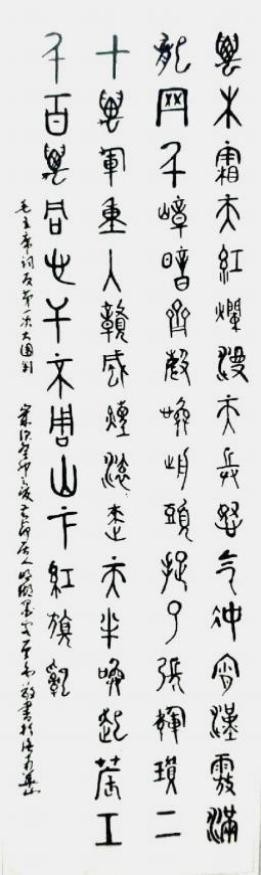 萬木霜天紅爛漫天兵怒气沖霄漢霧滿
龍岡千嶂暗齊聲喚前頭捉了張輝瓚二
十萬軍重入贛風煙滾〻來天半喚起農工
千百萬同心干不周山下紅旗亂
毛主席詞反第一次大圍剿
歲次癸卯之夏